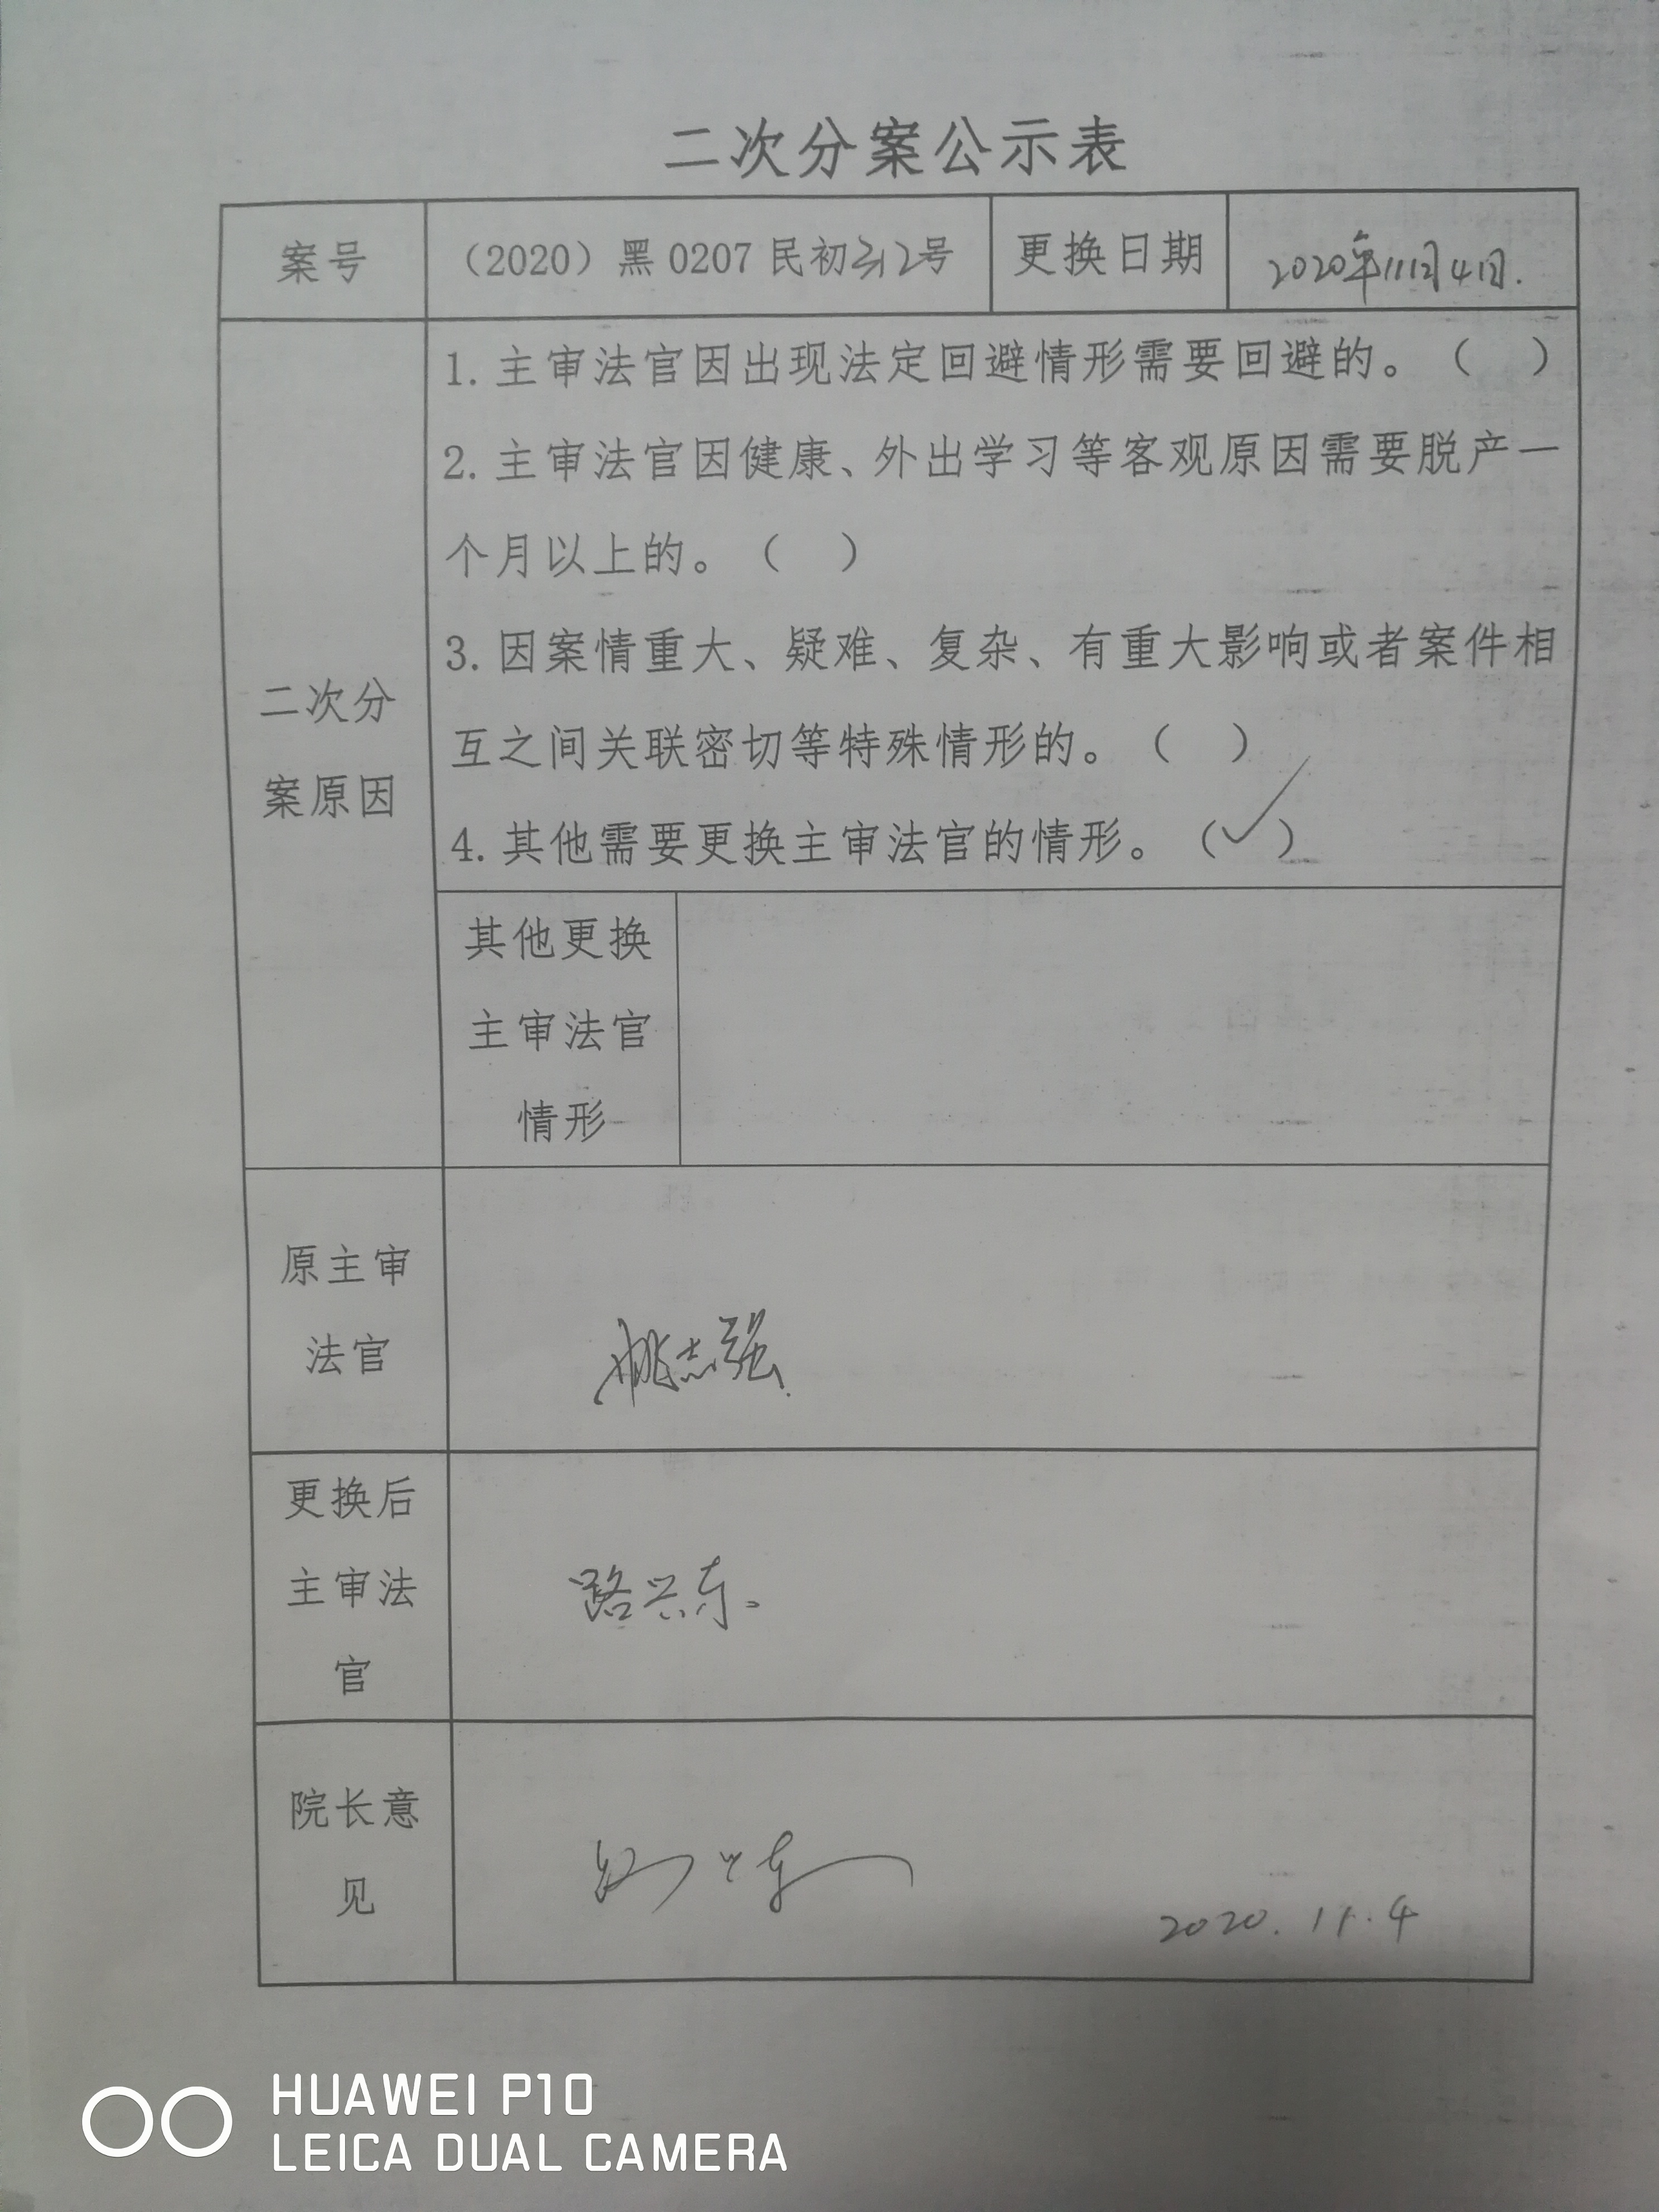 二次分案公示表
案号 （2020）黑 0207 民初312号 更换日期 2020年11月4日.
1. 主审法官因出现法定回避情形需要回避的。（ ）
2. 主审法官因健康、外出学习等客观原因需要脱产一
个月以上的。（ ）
3. 因案情重大、疑难、复杂、有重大影响或者案件相
互之间关联密切等特殊情形的。（ ）
4. 其他需要更换主审法官的情形。（✓）
二次分
案原因
其他更换
主审法官
情形
原主审
法官
姚志强
更换后
主审法
官
路兴东
院长意
见
2020.11.4
HUAWEI P10
LEICA DUAL CAMERA